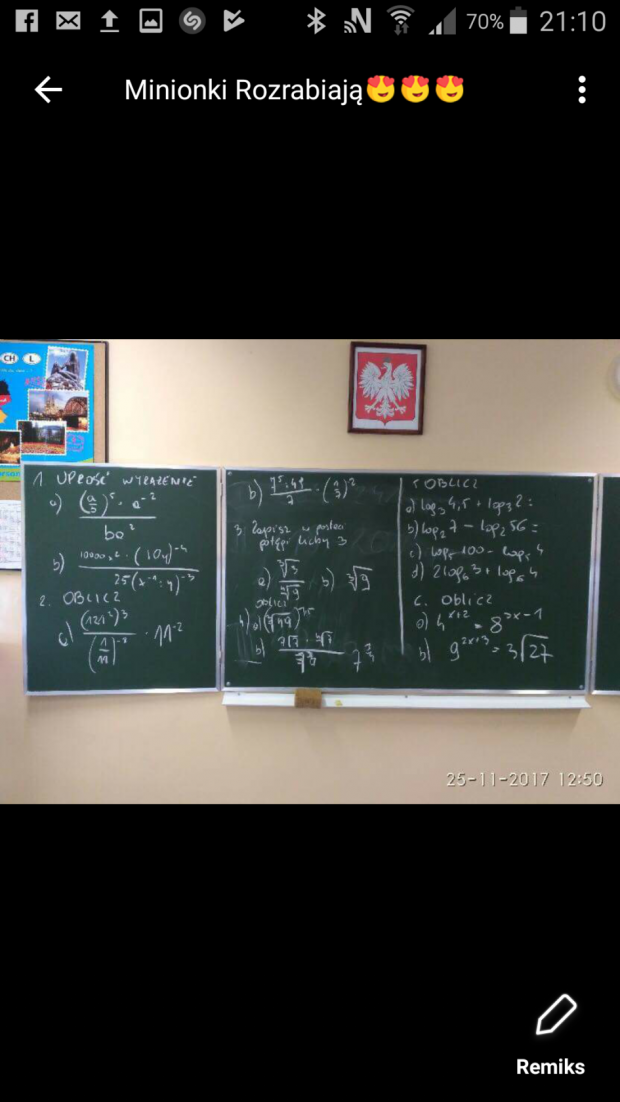 70% 21:10
Minionki Rozrabiają😍😍😍
CH L
1. UPROŚĆ WYRAŻENIE
a) (a/5)^5 · a^-2
b) 10000x^2 · (10y)^-4
25(x^-1:y)^-3
2. OBLICZ
a) (121^2)^3
(1/11)^-8 · 11^-2
b)
3. Zapisz w postaci
potęgi liczby 3
a)
b) ∛9
OBLICZ
4) a)
b)
5 OBLICZ
a) log₃4,5 + log₃2 =
b) log₂7 - log₂56 =
c) log₅100 - log₅4
d) 2log₆3 + log₆4
6. OBLICZ
a) 4^x+2 = 8^3x-1
b) 9^2x+3 = 3√27
25-11-2017 12:50
Remiks